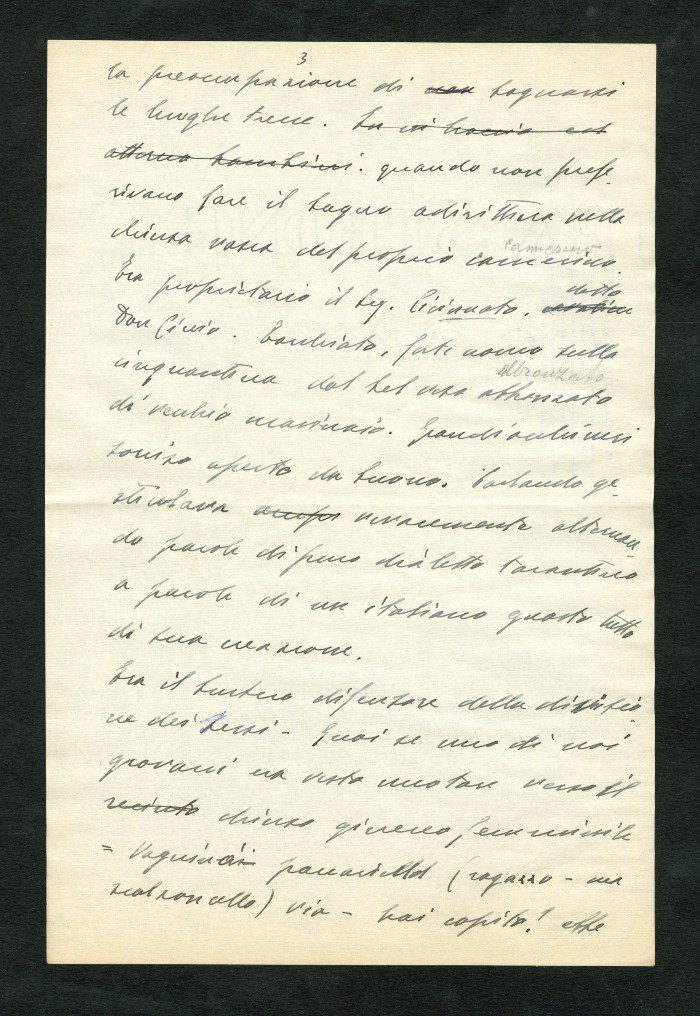 3
la preoccupazione di non bagnarsi
le lunghe trecce.
attorno bambini. quando non prefe-
rivano fare il bagno addirittura nella
chiusa vasca del proprio camerino.
camerino
Era proprietario il sig. Civinnato, detto
Don Civio. forte uomo sulla
cinquantina dal bel viso abbronzato
abbronzato
di vecchio marinaio. Grandi
sorriso aperto da buono. Parlando ge-
sticolava vivacemente alternan-
do parole di puro dialetto tarantino
a parole di un italiano quasi tutto
di sua creazione.
Era il difensore della divisio
ne dei sessi - Guai se uno di noi
giovani era visto nuotare verso il
recinto chiuso gineceo femminile
= (ragazzo - ma
scalzoncello) via - hai capito!